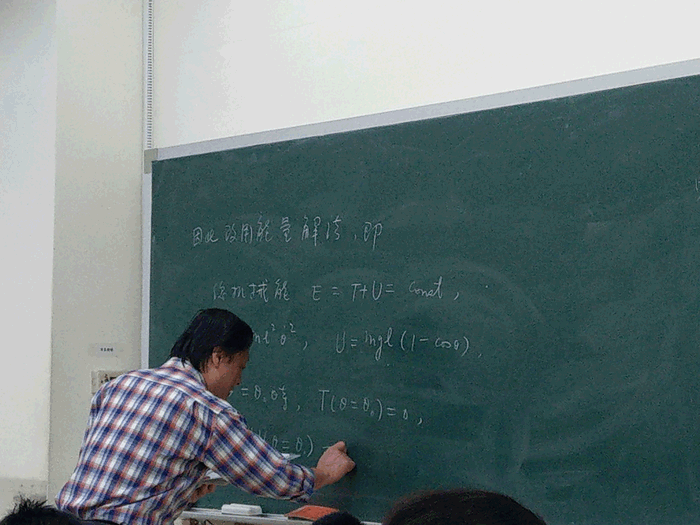 因此改用能量解法,即
總机械能 E = T+U = const,
ml²θ̇², U = mgl(1-cosθ),
=θ₀時, T(θ=θ₀)=0,
(θ=θ₀) =